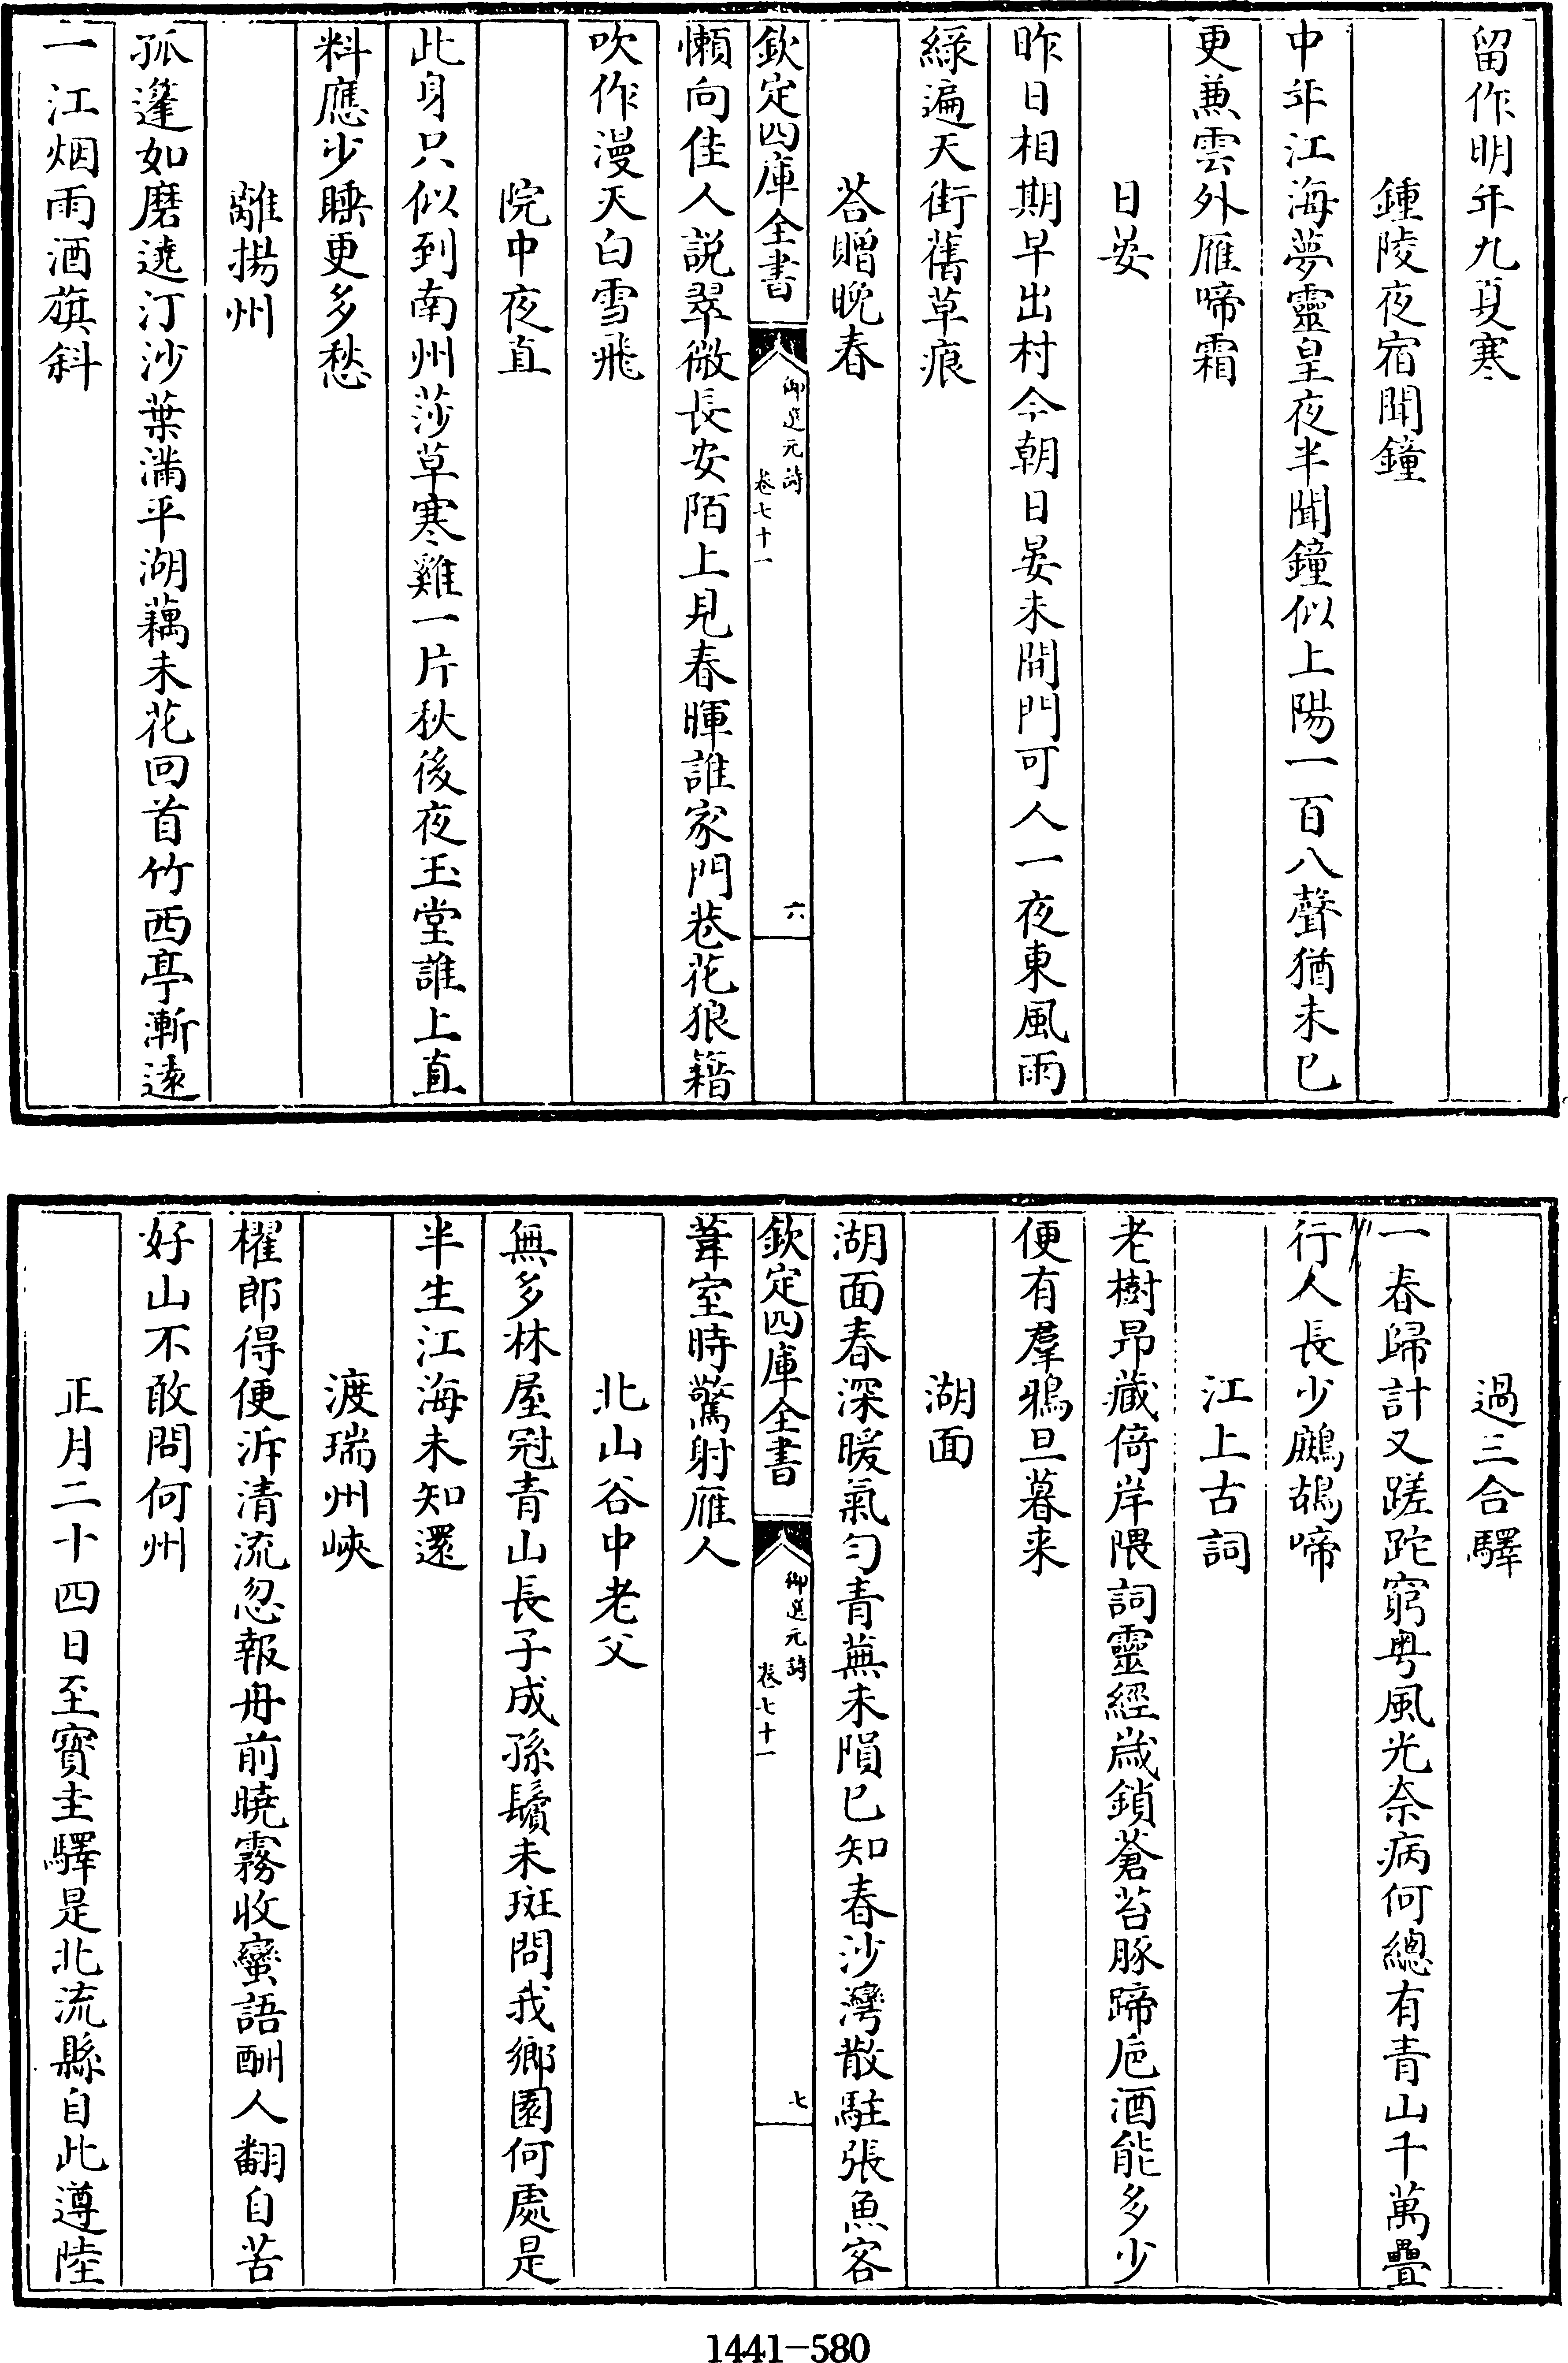 留作明年九夏寒
鍾陵夜宿聞鐘
中年江海夢靈皇夜半聞鐘似上陽一百八聲猶未已
更兼雲外雁啼霜
日晏
昨日相期早出村今朝日晏未開門可人一夜東風雨
綠遍天街舊草痕
荅贈晚春
欽定四庫全書
御選元詩
卷七十一
六
懶向佳人說翠微長安陌上見春暉誰家門巷花狼籍
吹作漫天白雪飛
院中夜直
此身只似到南州莎草寒雞一片秋後夜玉堂誰上直
料應少睡更多愁
離揚州
孤篷如磨遶汀沙葉滿平湖藕未花回首竹西亭漸遠
一江烟雨酒旗斜
過三合驛
一春歸計又蹉跎窮粤風光奈病何總有青山千萬疊
行人長少鷓鴣啼
江上古詞
老樹昂藏倚岸隈詞靈經歲鎖蒼苔豚蹄卮酒能多少
便有羣鴉旦暮来
湖面
湖面春深暖氣勻青蕪未隕已知春沙灣散駐張魚客
欽定四庫全書
御選元詩
卷七十一
七
葦室時驚射雁人
北山谷中老父
無多林屋冠青山長子成孫鬢未斑問我鄉園何處是
半生江海未知還
渡瑞州峽
櫂郎得便泝清流忽報舟前曉霧收蠻語酬人翻自苦
好山不敢問何州
正月二十四日至寶圭驛是北流縣自此遵陸
1441-580